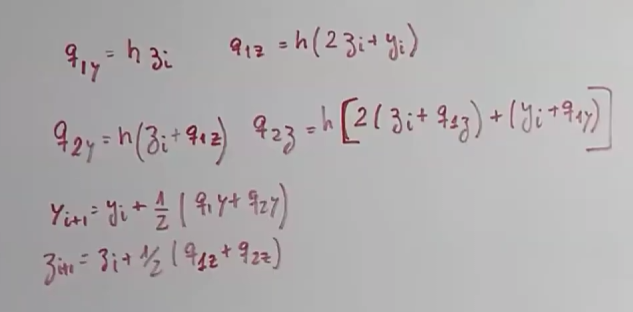 q₁y = h zi q₁z = h(2zi + yi)
q₂y = h(zi + q₁z) q₂z = h[2(zi + q₁z) + (yi + q₁y)]
yi+1 = yi + 1/2 (q₁y + q₂y)
zi+1 = zi + 1/2 (q₁z + q₂z)